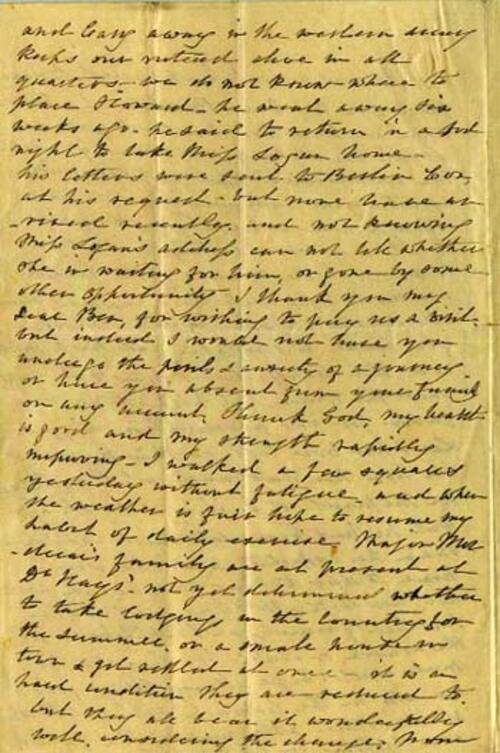 and Cary away in the western army
keeps our interest alive in all
quarters - we do not know where to
place Howard - he went away six
weeks ago - he said to return in a fort
night to take Miss Logan home -
his letters were sent to Berlin Con,
at his request - but none have ar
-rived recently. and not knowing
Miss Logans address can not tell whether
she is waiting for him, or gone by some
other opportunity. I thank you my
dear Ben, for wishing to pay us a visit -
but indeed I would not have you
undergo the perils & anxiety of a journey -
or have you absent from your family
on any account, Thank God, my health
is good and my strength rapidly
improving - I walked a few squares
yesterday without fatigue, and when
the weather is fair hope to resume my
habit of daily exercise. Major Mor
-decai's family are at present at
Dr Hays'. not yet determined whether
to take lodgings in the country for
the summer. or a small house in
town & get settled at once - it is a
hard condition they are reduced to.
but they all bear it wonderfully
well. considering the change;